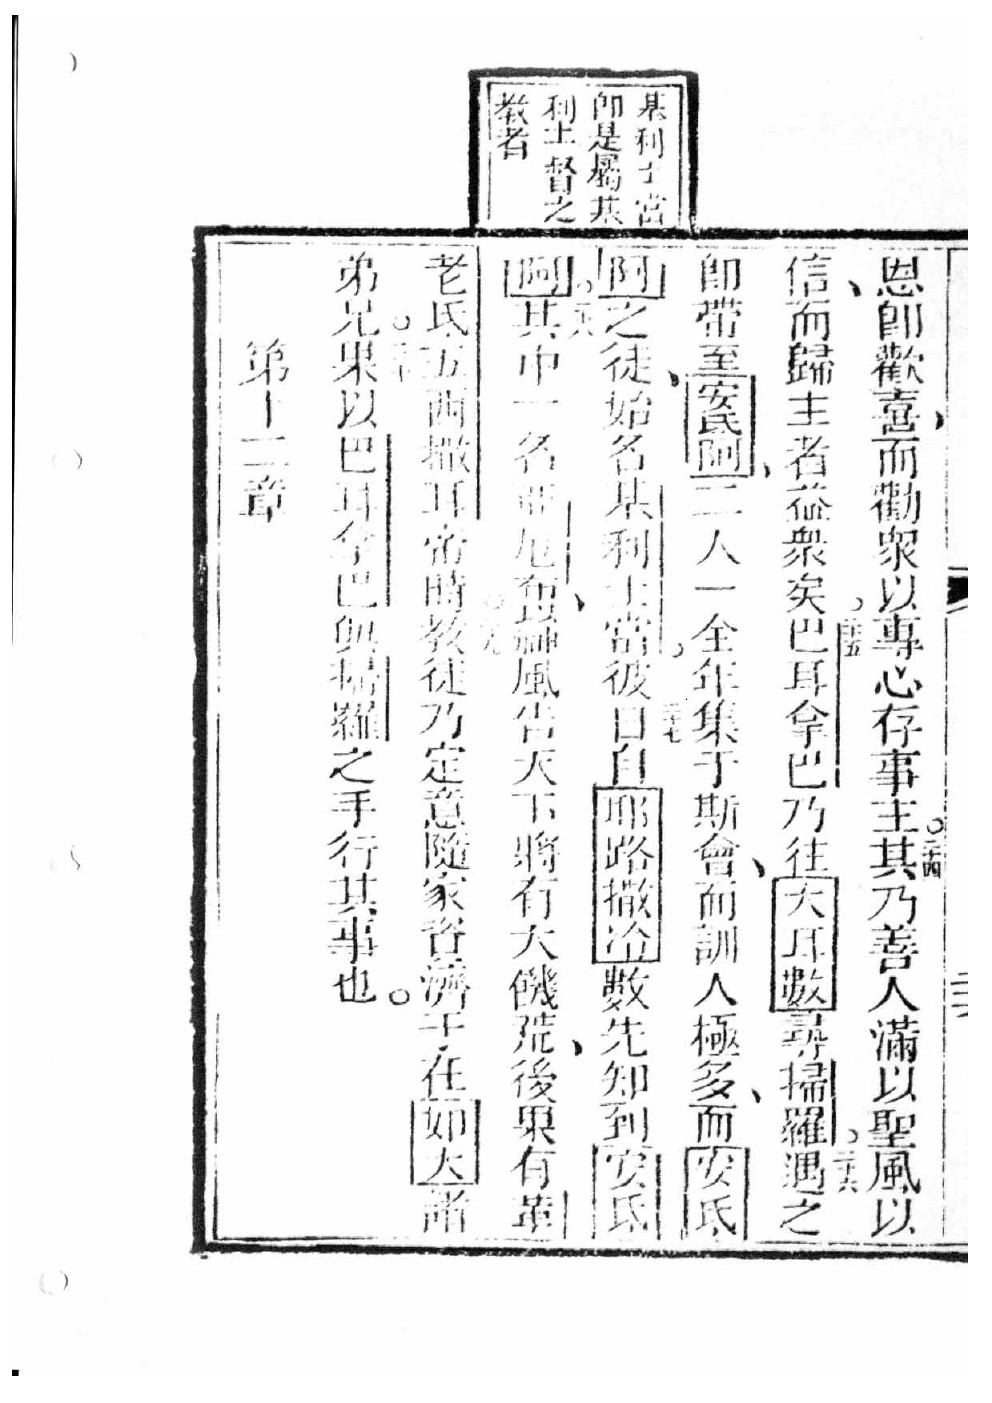 基利士當
卽是屬基
利士督之
教者
恩卽歡喜而勸衆以專心存事主。二十四其乃善人滿以聖風以
信、而歸主者益衆矣。二十五巴耳拿巴乃往大耳數尋掃羅。二十六遇之
卽帶至安氐阿、二人一全年集于斯會、而訓人極多、而安氐
阿之徒、始名基利士當。二十七彼日自耶路撒冷數先知到安氐
阿。二十八其中一名亞厄布、神風告天下將有大饑荒、後果有革
老氐五西撒耳當時。二十九教徒乃定意隨家資濟于在如大諸
弟兄。三十果以巴耳拿巴與掃羅之手行其事也。
第十二章